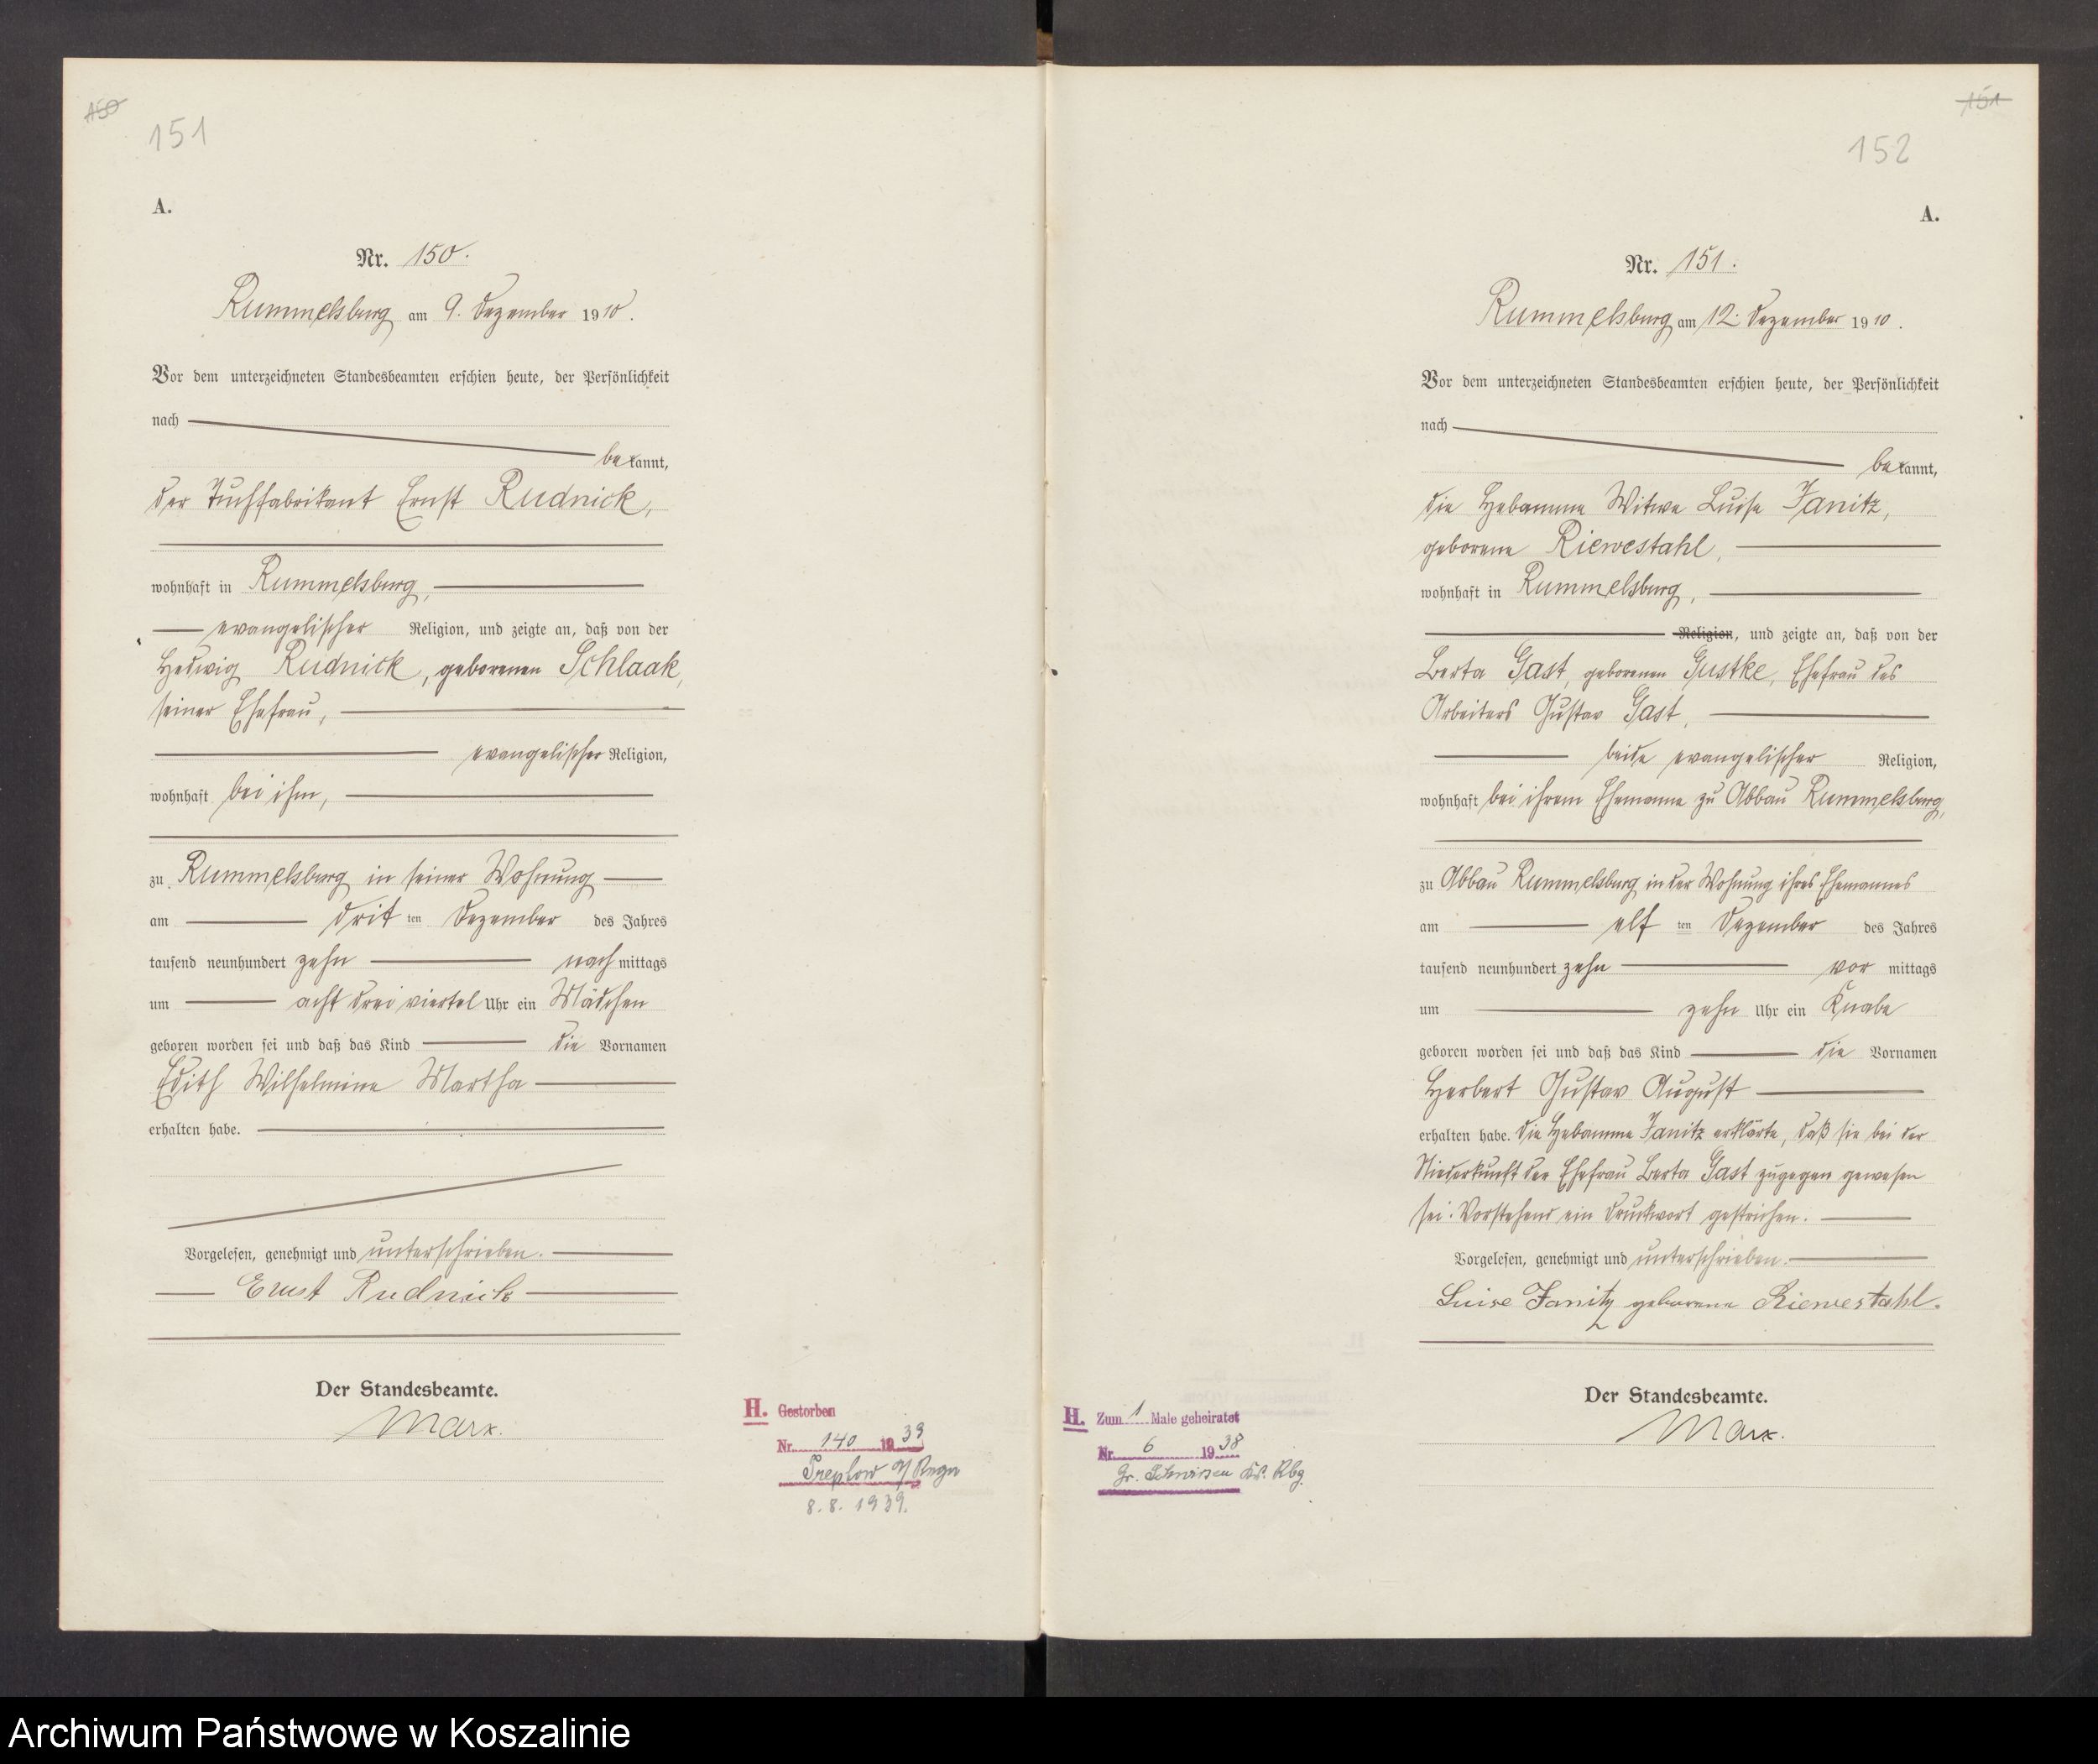 150
151
A.
Nr. 150.
Rummelsburg am 9. Dezember 1910.
Vor dem unterzeichneten Standesbeamten erschien heute, der Persönlichkeit
nach
bekannt,
der Tuchfabrikant Ernst Rudnick,
wohnhaft in Rummelsburg,
evangelischer Religion, und zeigte an, daß von der
Hedwig Rudnick, geborenen Schlaak,
seiner Ehefrau,
evangelischer Religion,
wohnhaft bei ihm,
zu Rummelsburg in seiner Wohnung
am dritten Dezember des Jahres
tausend neunhundert zehn nachmittags
um acht drei viertel Uhr ein Mädchen
geboren worden sei und daß das Kind die Vornamen
Edith Wilhelmine Martha
erhalten habe.
Vorgelesen, genehmigt und unterschrieben.
Ernst Rudnick
Der Standesbeamte.
Marx.
H. Gestorben
Nr. 140 1939
Treptow a/ Rega
8.8.1939.
151
152
A.
Nr. 151.
Rummelsburg am 12. Dezember 1910.
Vor dem unterzeichneten Standesbeamten erschien heute, der Persönlichkeit
nach
bekannt,
die Hebamme Witwe Luise Janitz,
geborene Riewestahl,
wohnhaft in Rummelsburg,
Religion, und zeigte an, daß von der
Berta Gast, geborenen Gustke, Ehefrau des
Arbeiters Gustav Gast,
beide evangelischer Religion,
wohnhaft bei ihrem Ehemanne zu Abbau Rummelsburg,
zu Abbau Rummelsburg in der Wohnung ihres Ehemannes
am elften Dezember des Jahres
tausend neunhundert zehn vormittags
um zehn Uhr ein Knabe
geboren worden sei und daß das Kind die Vornamen
Herbert Gustav August
erhalten habe. Die Hebamme Janitz erklärte, daß sie bei der
Niederkunft der Ehefrau Berta Gast zugegen gewesen
sei. Vorstehend ein Druckwort gestrichen.
Vorgelesen, genehmigt und unterschrieben.
Luise Janitz geborene Riewestahl.
Der Standesbeamte.
Marx.
H. Zum 1 Male geheiratet
Nr. 6 1938
Gr. Schwirsen Krs. Rbg.
Archiwum Państwowe w Koszalinie